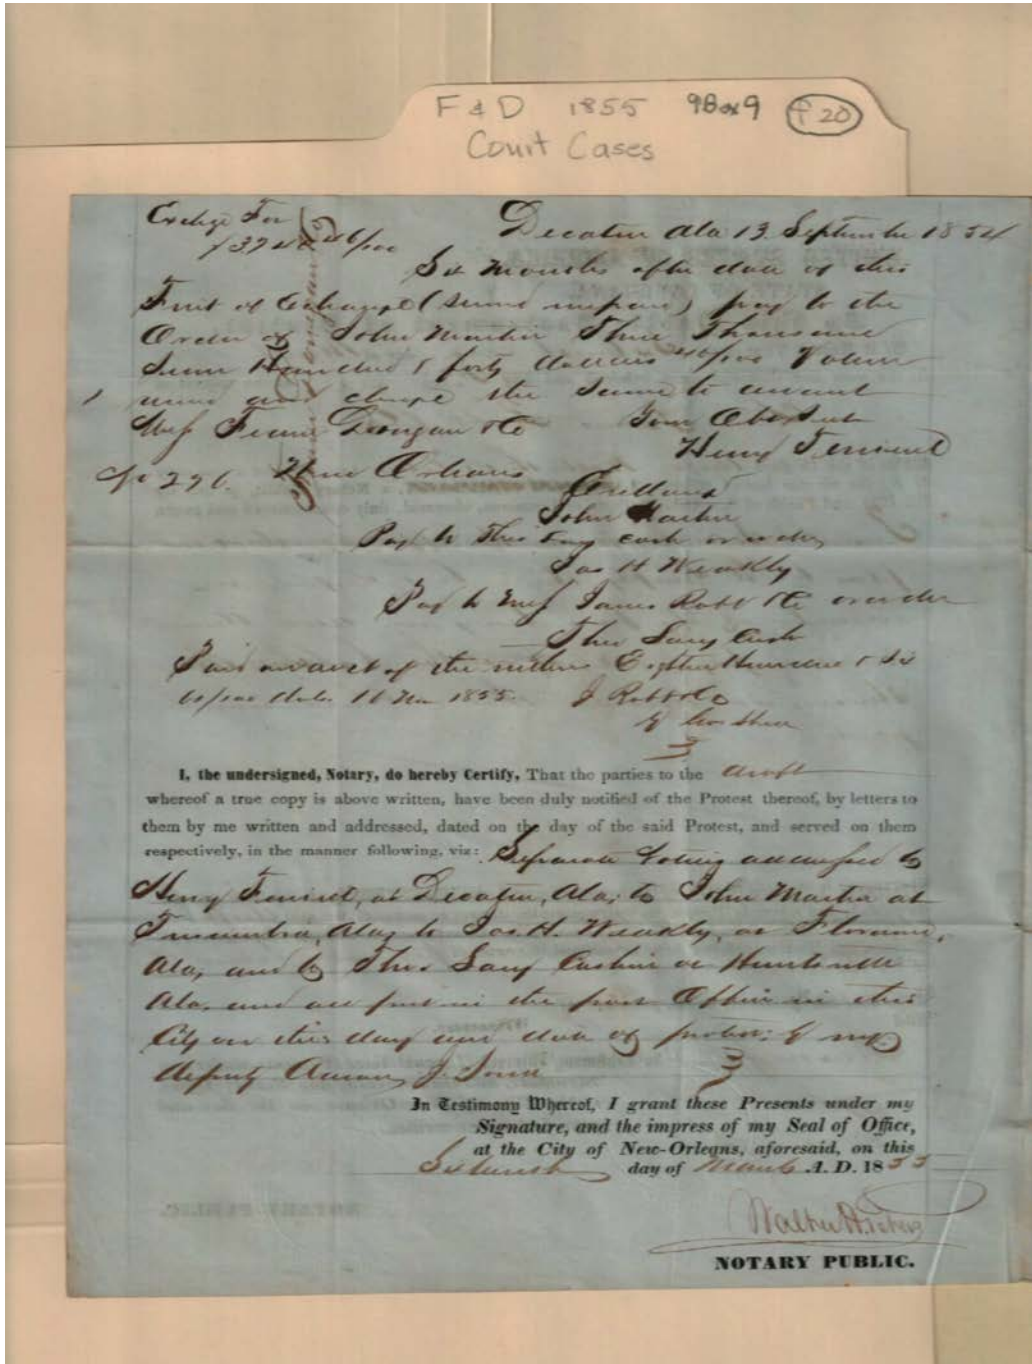 F & D 1855 9Box9 F 20
Court Cases
Decatur Ala 13 September 1854
Exchge For
$3740 46/100
Six Months after date of this
First of Exchange (Second unpaid) pay to the
Order of John Martin Three Thousand
Seven Hundred & forty dollars 46/100 Value
and charge the Same to account
Mess & Co Your Obt Svt
Henry
New Orleans
No 296.
John Martin
Pay to Theo Lacy Cash or order
Jas H Weakly
Pay to Mess James Robb & Co or order
Theo Lacy Cash
of the within Eighteen Hundred & Six
60/100 1855. J Robb & Co
I, the undersigned, Notary, do hereby Certify, That the parties to the draft
whereof a true copy is above written, have been duly notified of the Protest thereof, by letters to
them by me written and addressed, dated on the day of the said Protest, and served on them
respectively, in the manner following, viz: Separate Notices addressed to
Henry at Decatur, Ala; to John Martin at
Tuscumbia, Ala; to Jas H. Weakly, at Florence,
Ala, and to Theo Lacy Cashier at Huntsville
Ala, and all put in the post Office in this
City on this day and date of protest; by my
deputy
In Testimony Whereof, I grant these Presents under my
Signature, and the impress of my Seal of Office,
at the City of New-Orleans, aforesaid, on this
Sixteenth day of March A. D. 1855
Walter H. Peters
NOTARY PUBLIC.